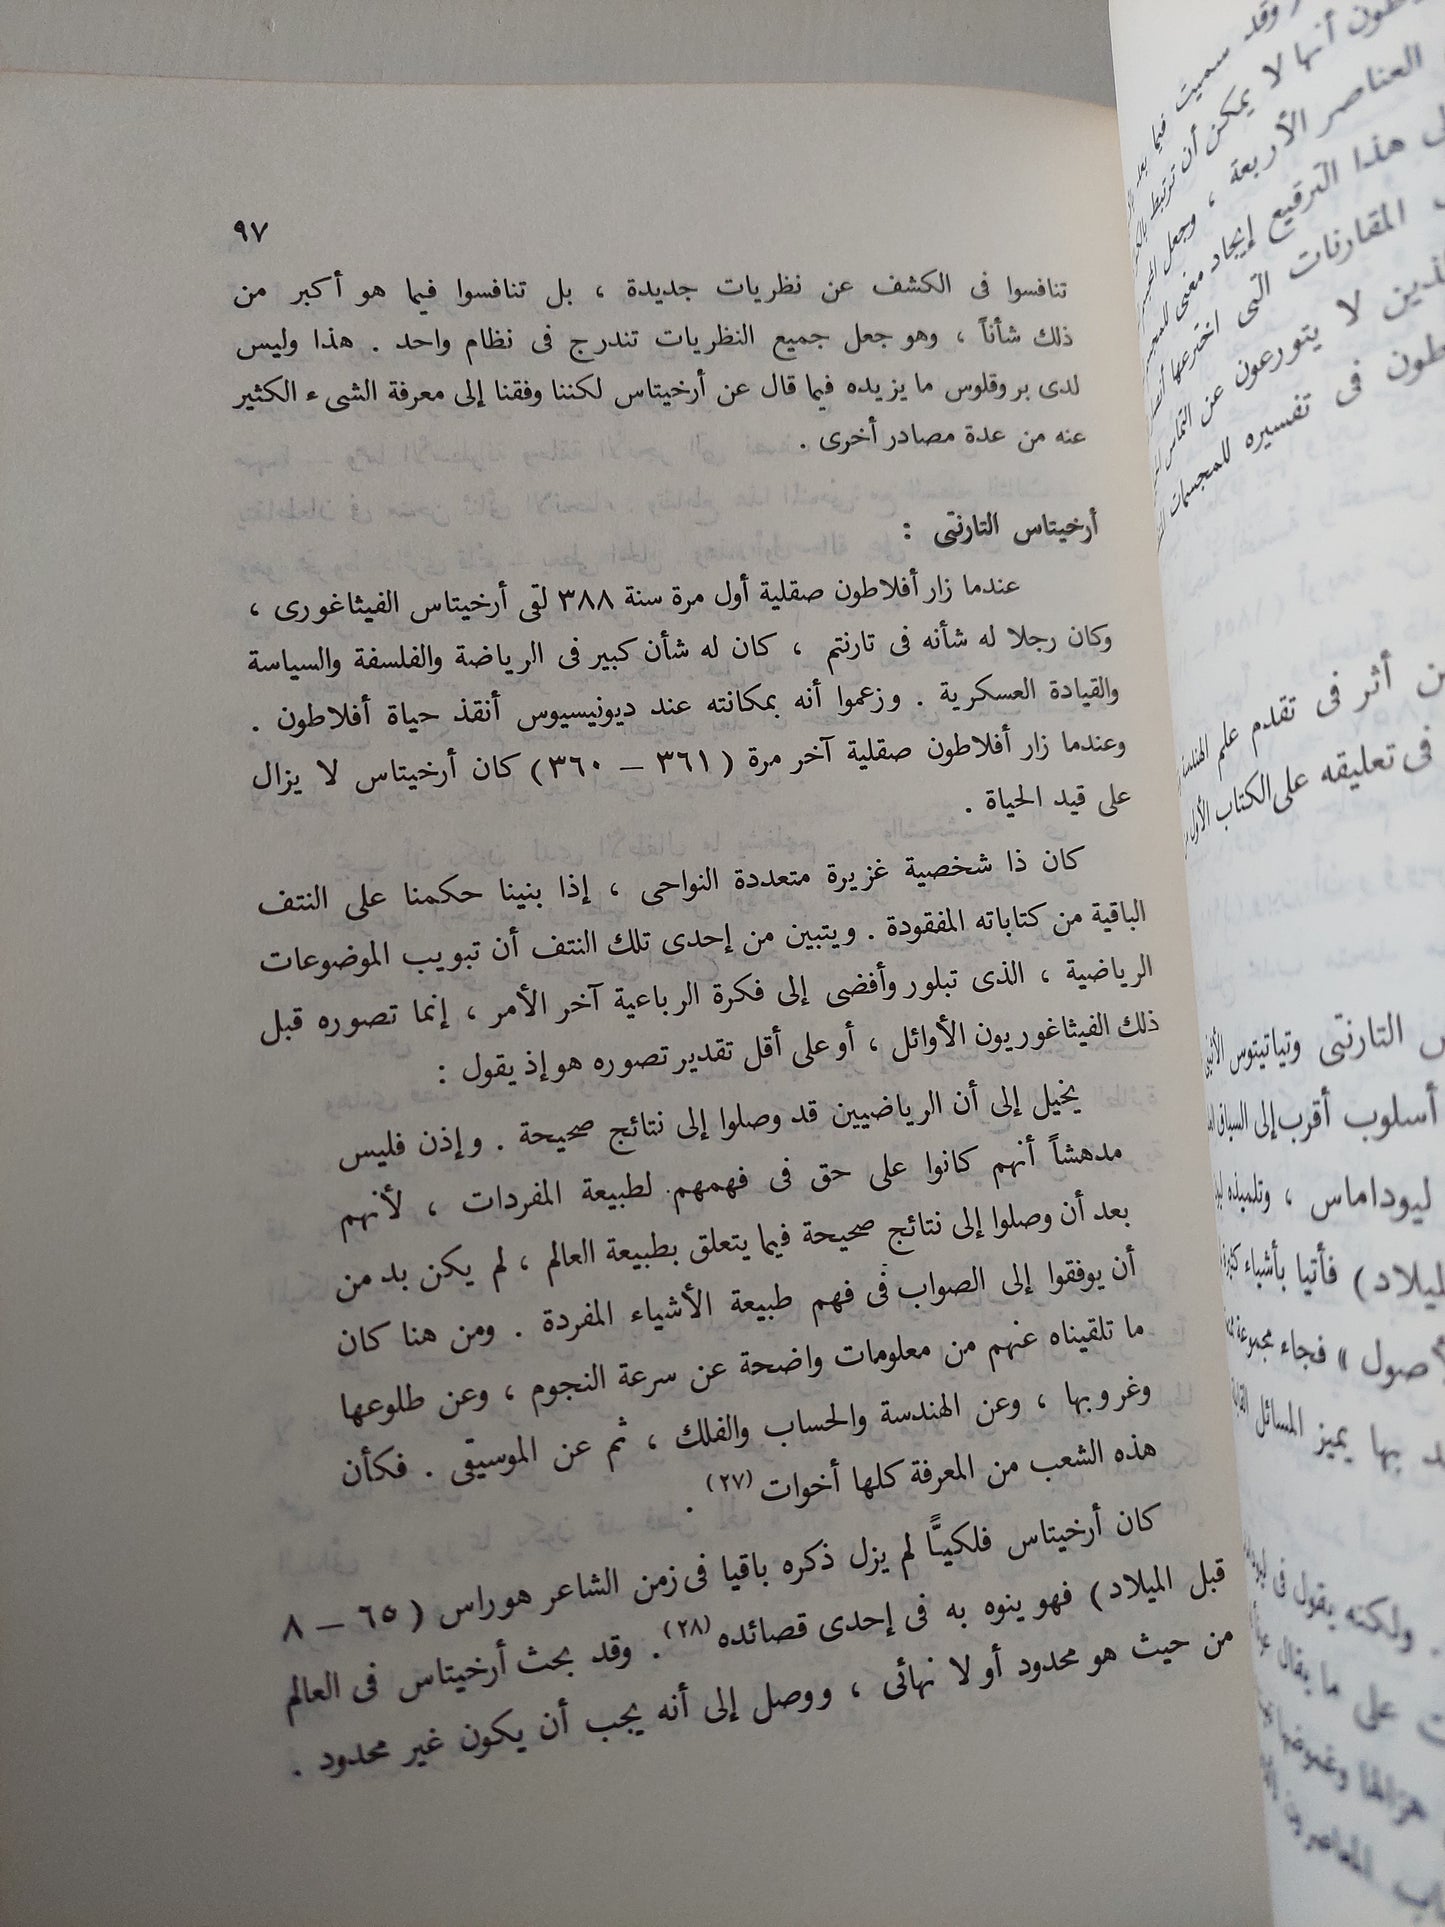 ٩٧
تنافسوا فى الكشف عن نظريات جديدة ، بل تنافسوا فيما هو أكبر من
ذلك شأناً ، وهو جعل جميع النظريات تندرج فى نظام واحد . هذا وليس
لدى بروقلوس ما يزيده فيما قال عن أرخيتاس لكننا وفقنا إلى معرفة الشىء الكثير
عنه من عدة مصادر أخرى .
أرخيتاس التارنتى :
عندما زار أفلاطون صقلية أول مرة سنة ٣٨٨ لقى أرخيتاس الفيثاغورى ،
وكان رجلا له شأنه فى تارنتم ، كان له شأن كبير فى الرياضة والفلسفة والسياسة
والقيادة العسكرية . وزعموا أنه بمكانته عند ديونيسيوس أنقذ حياة أفلاطون .
وعندما زار أفلاطون صقلية آخر مرة ( ٣٦١ – ٣٦٠ ) كان أرخيتاس لا يزال
على قيد الحياة .
كان ذا شخصية غزيرة متعددة النواحى ، إذا بنينا حكمنا على النتف
الباقية من كتاباته المفقودة . ويتبين من إحدى تلك النتف أن تبويب الموضوعات
الرياضية ، الذى تبلور وأفضى إلى فكرة الرباعية آخر الأمر ، إنما تصوره قبل
ذلك الفيثاغوريون الأوائل ، أو على أقل تقدير تصوره هو إذ يقول :
يخيل إلى أن الرياضيين قد وصلوا إلى نتائج صحيحة . وإذن فليس
مدهشاً أنهم كانوا على حق فى فهمهم لطبيعة المفردات ، لأنهم
بعد أن وصلوا إلى نتائج صحيحة فيما يتعلق بطبيعة العالم ، لم يكن بد من
أن يوفقوا إلى الصواب فى فهم طبيعة الأشياء المفردة . ومن هنا كان
ما تلقيناه عنهم من معلومات واضحة عن سرعة النجوم ، وعن طلوعها
وغروبها ، وعن الهندسة والحساب والفلك ، ثم عن الموسيقى . فكأن
هذه الشعب من المعرفة كلها أخوات (٢٧) .
كان أرخيتاس فلكيـًّا لم يزل ذكره باقيا فى زمن الشاعر هوراس ( ٦٥ – ٨
قبل الميلاد ) فهو ينوه به فى إحدى قصائده (٢٨) . وقد بحث أرخيتاس فى العالم
من حيث هو محدود أو لا نهائى ، ووصل إلى أنه يجب أن يكون غير محدود .
وقد سميت فيما بعد
أنها لا يمكن أن ترتبط
العناصر الأربعة ، وجعل
هذا الترقيع إيجاد معنى
المقارنات التى اخترعها
لا يتورعون عن التماس
فى تفسيره للمجسمات
أثر فى تقدم علم
فى تعليقه على الكتاب الأول
التارنتى وتياتيتوس
أسلوب أقرب إلى السياق
ليوداماس ، وتلميذه
فأتيا بأشياء
فجاء مجموعة
بها يميز المسائل
ولكنه يقول فى
على ما يقال